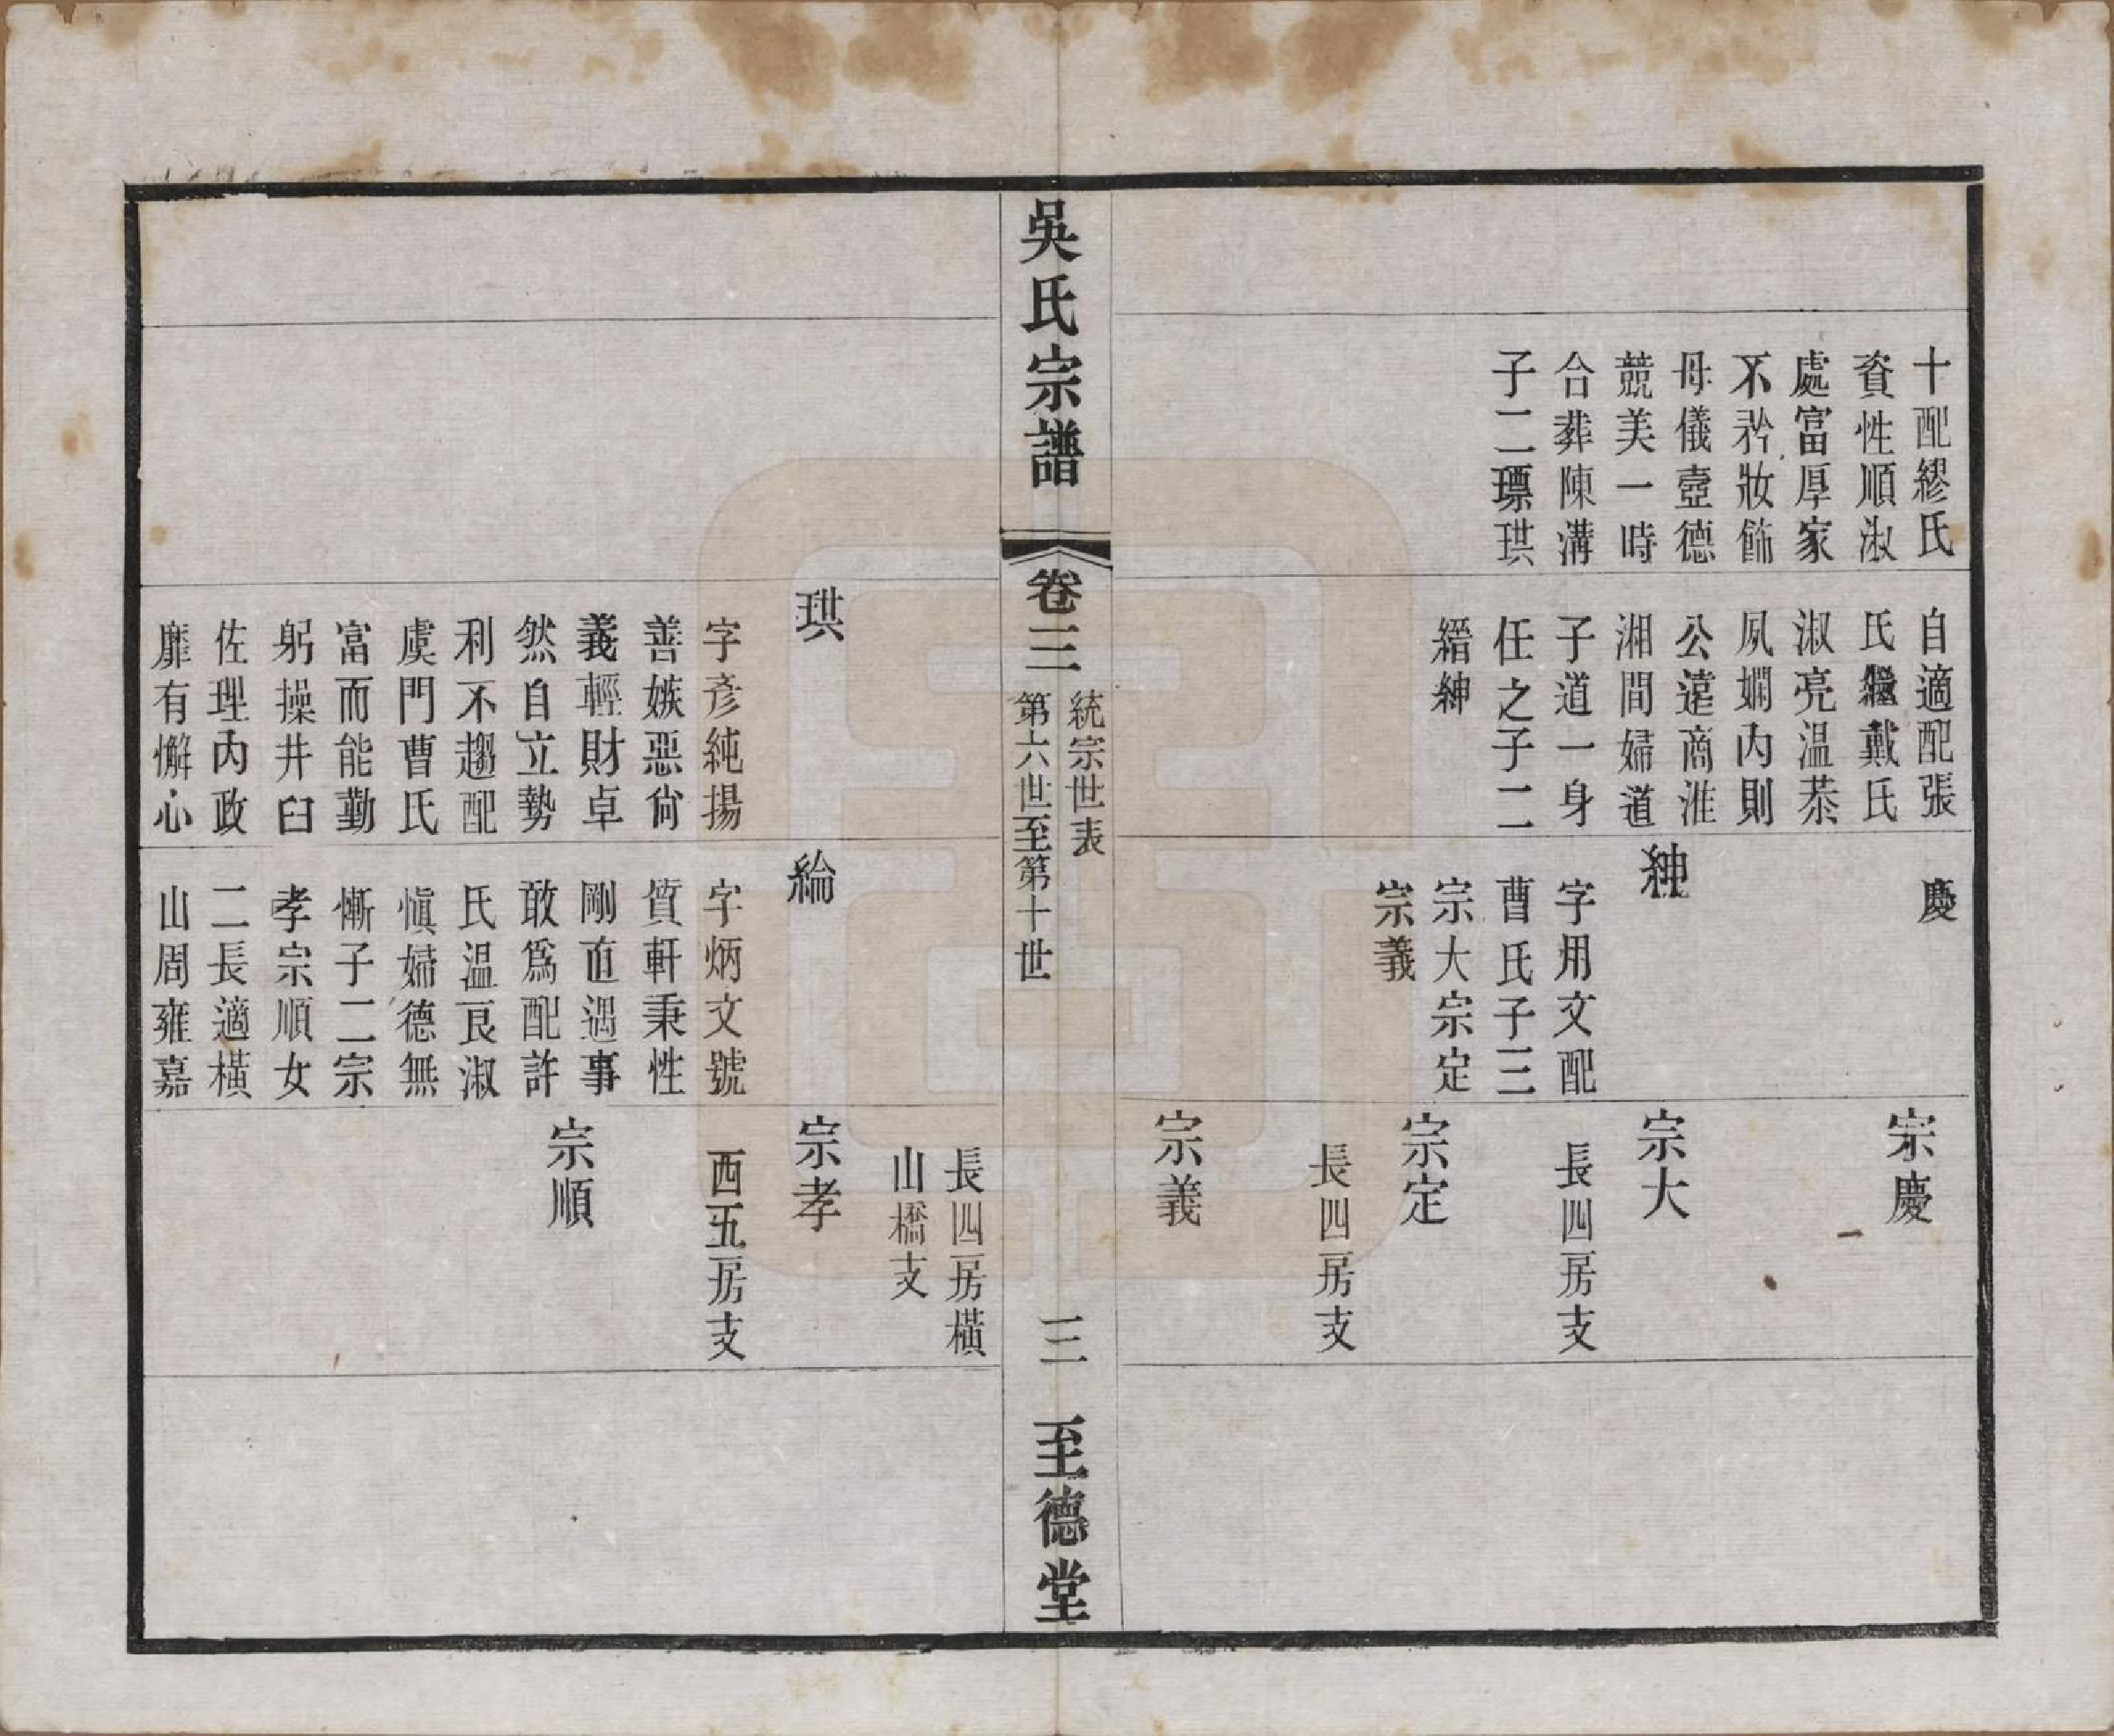 十配繆氏
資性順淑
處富厚家
不矜妝飾
母儀壼德
競美一時
合葬陳溝
子二瓢珙
自適配張
氏繼戴氏
淑亮温恭
夙嫻內則
公遠商淮
湘間婦道
子道一身
任之子二
縉紳
慶
紳
字用文配
曹氏子三
宗大宗定
宗義
宗慶
宗大
長四房支
宗定
長四房支
宗義
吳氏宗譜
卷三
統宗世表
第六世至第十世
三
至德堂
珙
字彥純揚
善嫉惡尙
義輕財卓
然自立勢
利不趨配
虞門曹氏
富而能勤
躬操井臼
佐理內政
靡有懈心
綸
字炳文號
質軒秉性
剛直遇事
敢為配許
氏温良淑
愼婦德無
慚子二宗
孝宗順女
二長適橫
山周雍嘉
長四房橫
山橋支
宗孝
西五房支
宗順